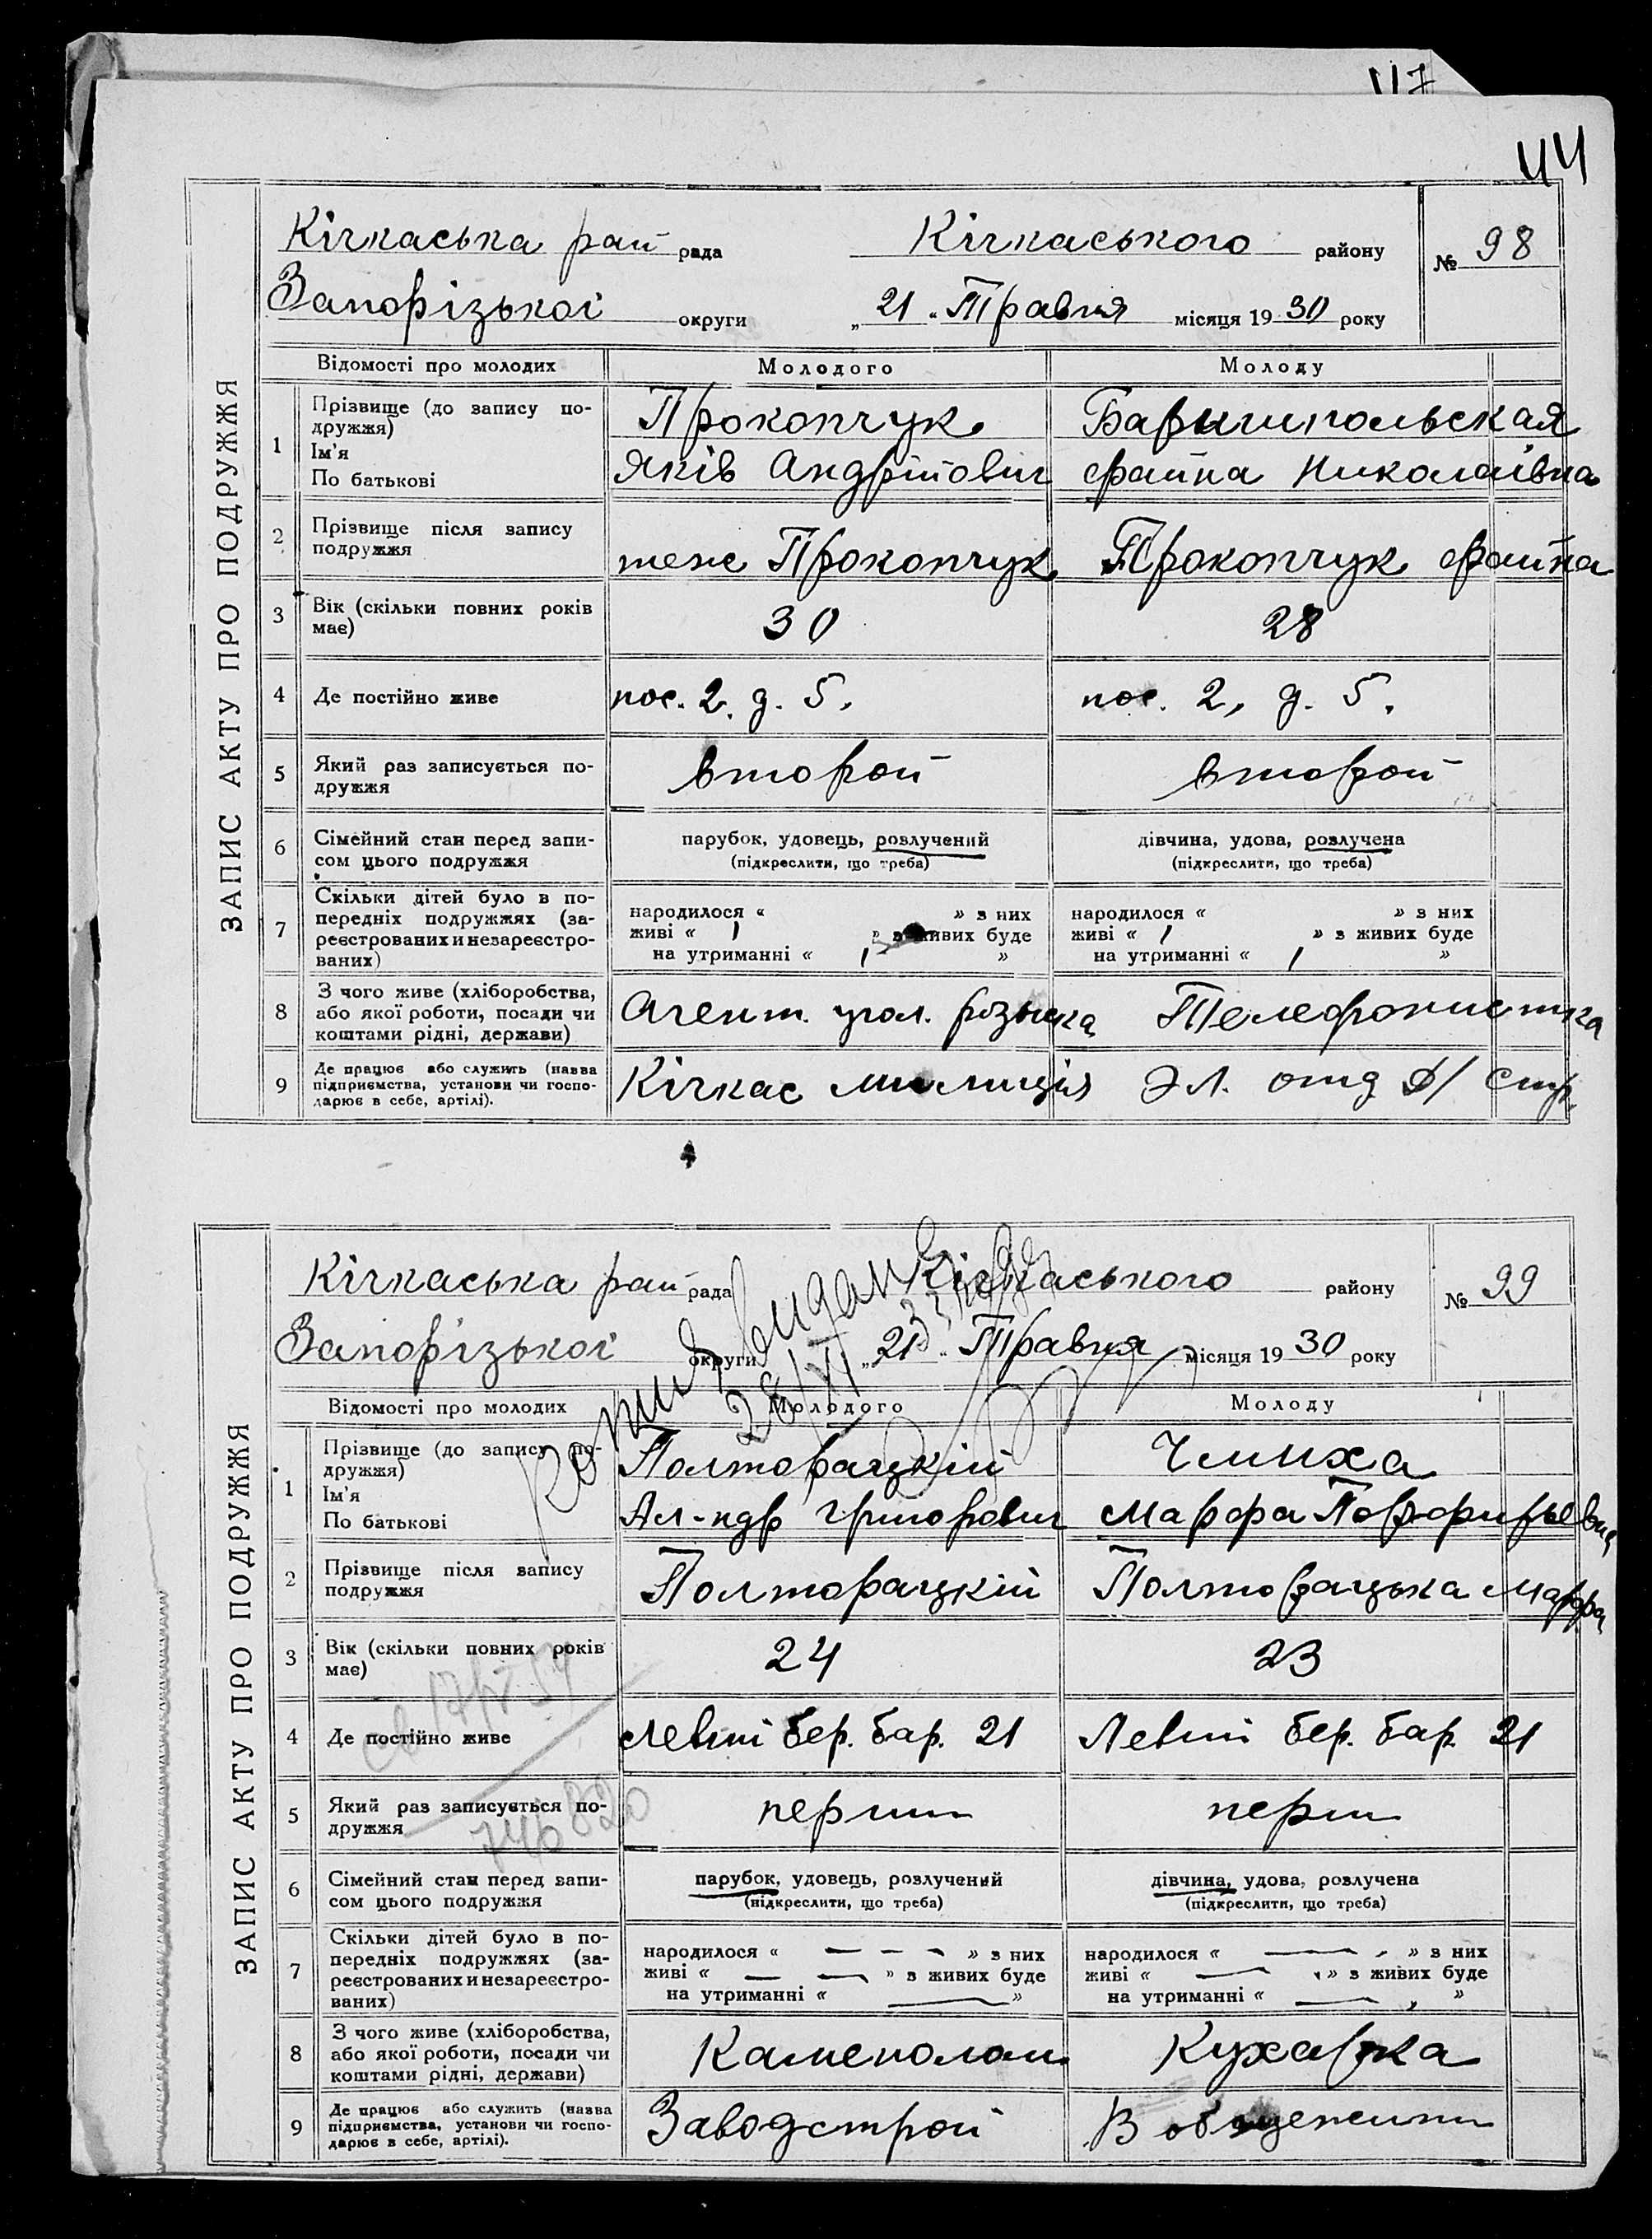 117
44
ЗАПИС АКТУ ПРО ПОДРУЖЖЯ
Кічкаська рай рада Кічкаського району № 98
Запорізької округи „21" Травня місяця 1930 року
Відомості про молодих Молодого Молоду
1 Прізвище (до запису по-
дружжя) Прокопчук Баришпольская
Ім'я
По батькові Яків Андрійович Фаина Николаівна
2 Прізвище після запису
подружжя теж Прокопчук Прокопчук Фаина
3 Вік (скільки повних років
має) 30 28
4 Де постійно живе пос. 2. д. 5. пос. 2, д. 5.
5 Який раз записується по-
дружжя второй второй
6 Сімейний стан перед запи-
сом цього подружжя парубок, удовець, розлучений дівчина, удова, розлучена
(підкреслити, що треба) (підкреслити, що треба)
7 Скільки дітей було в по-
передніх подружжях (за-
реєстрованих и незареєстро-
ваних)
народилося « » з них народилося « » з них
живі « 1 » з живих буде живі « 1 » з живих буде
на утриманні « 1 » на утриманні « 1 »
8 З чого живе (хліборобства,
або якої роботи, посади чи
коштами рідні, держави) Агент. угол. розыска Телефонистка
9 Де працює або служить (назва
підприємства, установи чи госпо-
дарює в себе, артілі). Кічкас милиція Эл. отд Д/ стр.
ЗАПИС АКТУ ПРО ПОДРУЖЖЯ
Кічкаська рай рада Кічкаського району № 99
Запорізької округи „21" Травня місяця 1930 року
видан
28/VI
Відомості про молодих Молодого Молоду
1 Прізвище (до запису по-
дружжя) Полторацкій Чмиха
Ім'я
По батькові Ал-ндр Григорович Марфа Порфирьевна
2 Прізвище після запису
подружжя Полторацкій Полторацька Марфа
3 Вік (скільки повних років
має) 24 23
4 Де постійно живе Левий бер. бар. 21 Левий бер. бар. 21
5 Який раз записується по-
дружжя перший перш
746820
6 Сімейний стан перед запи-
сом цього подружжя парубок, удовець, розлучений дівчина, удова, розлучена
(підкреслити, що треба) (підкреслити, що треба)
7 Скільки дітей було в по-
передніх подружжях (за-
реєстрованих и незареєстро-
ваних)
народилося « — — — » з них народилося « — » з них
живі « — — » з живих буде живі « — » з живих буде
на утриманні « — » на утриманні « — »
8 З чого живе (хліборобства,
або якої роботи, посади чи
коштами рідні, держави) Каменолом Кухарка
9 Де працює або служить (назва
підприємства, установи чи госпо-
дарює в себе, артілі). Заводстрой В общежитии